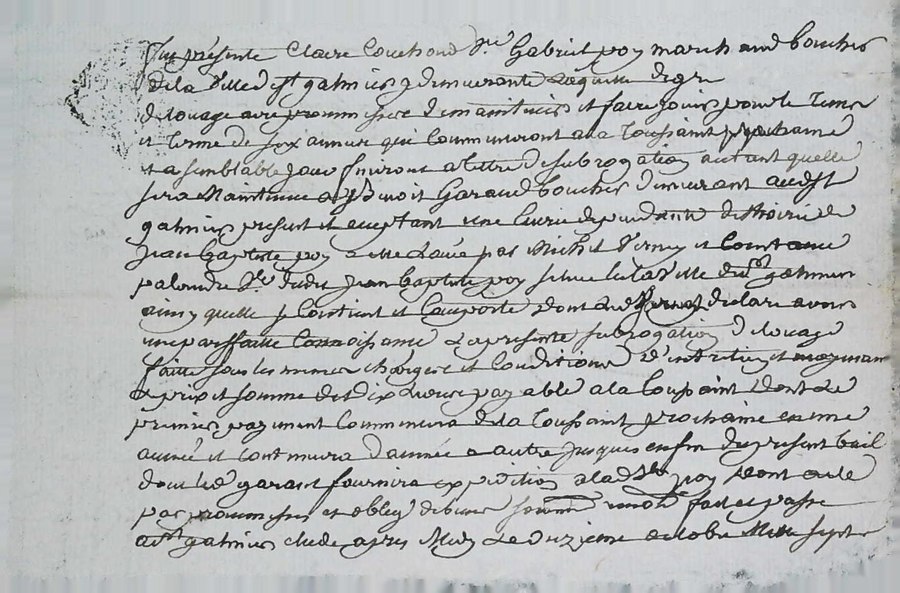 Fut présente Claire Couchoud Vve Gabriel poy marchand boucher
de la Ville de st galmier y demeurante Laquelle de gre
de louage avec promesse de maintenir et faire jouir pour le tems
et terme de six années qui commenceront a la Toussaint prochaine
et a semblable jour finiront a titre de subrogation autant quelle
sera Maintenue a Benoit Garand boucher demeurant audit st
galmier present et acceptant une Curie dependante de Hoirie de
Jean Baptiste poy a elle Louée par Michel Verney et Constance
palandre Vve dudit Jean Baptiste poy située en la Ville dud st galmier
ainsy quelle se Contient et Comporte dont led declare avoir
une parfaitte Connoissance La presente subrogation de louage
faitte sous les memes charges et Conditions d'entretien et moyenant
Le prix et somme de dix Livres payable a la Toussaint dont Le
premier payment Commencera de la Toussaint prochaine en une
année et Continuera d'année a autre jusques en fin du present bail
dont led garant fournira expedition a lad Vve poy
par promesses et oblig de biens soumis renon fait et passé
a st galmier etude apres Midy Le onzieme octobre Mille sept